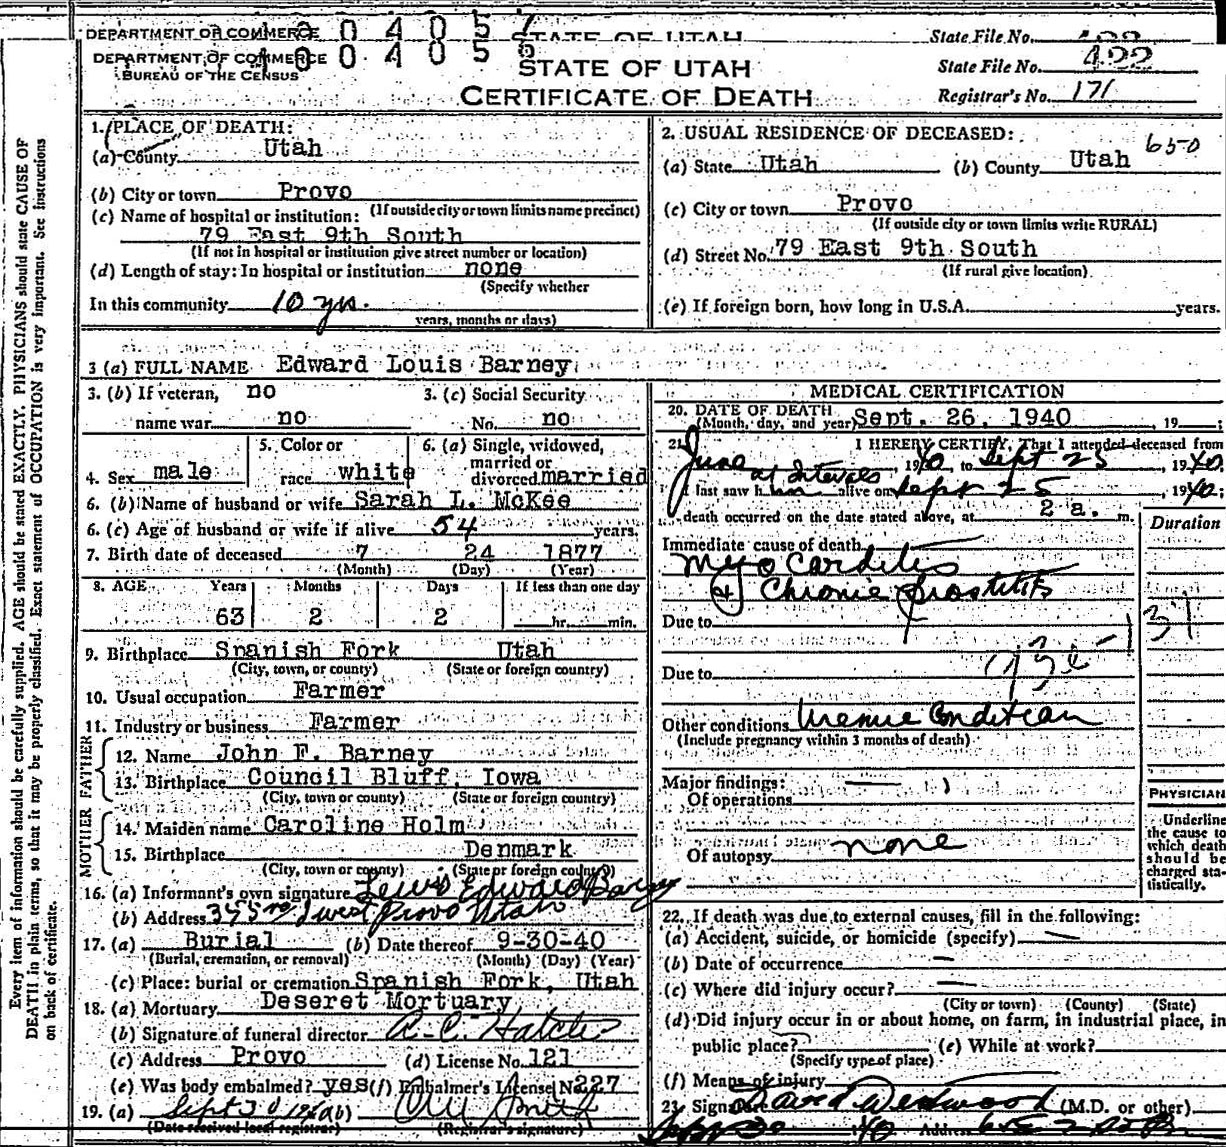 DEPARTMENT OF COMMERCE 0 4 0 5 7 STATE OF UTAH State File No.
DEPARTMENT OF COMMERCE 0 0 4 0 5 6 STATE OF UTAH State File No. 422
BUREAU OF THE CENSUS
CERTIFICATE OF DEATH Registrar's No. 171
Every item of information should be carefully supplied. AGE should be stated EXACTLY. PHYSICIANS should state CAUSE OF
DEATH in plain terms, so that it may be properly classified. Exact statement of OCCUPATION is very important. See instructions
on back of certificate.
1. PLACE OF DEATH:
(a) County Utah
(b) City or town Provo
(If outside city or town limits name precinct)
(c) Name of hospital or institution:
79 East 9th South
(If not in hospital or institution give street number or location)
(d) Length of stay: In hospital or institution none
(Specify whether
In this community 10 yrs.
years, months or days)
2. USUAL RESIDENCE OF DECEASED:
650
(a) State Utah (b) County Utah
(c) City or town Provo
(If outside city or town limits write RURAL)
(d) Street No. 79 East 9th South
(If rural give location)
(e) If foreign born, how long in U.S.A. years.
3 (a) FULL NAME Edward Louis Barney
3. (b) If veteran, no 3. (c) Social Security
name war no No. no
4. Sex male 5. Color or race white 6. (a) Single, widowed, married or divorced married
6. (b) Name of husband or wife Sarah L. McKee
6. (c) Age of husband or wife if alive 54 years.
7. Birth date of deceased 7 24 1877
(Month) (Day) (Year)
8. AGE Years Months Days If less than one day
63 2 2 hr. min.
9. Birthplace Spanish Fork Utah
(City, town, or county) (State or foreign country)
10. Usual occupation Farmer
11. Industry or business Farmer
FATHER
12. Name John F. Barney
13. Birthplace Council Bluff, Iowa
(City, town or county) (State or foreign country)
MOTHER
14. Maiden name Caroline Holm
15. Birthplace Denmark
(City, town or county) (State or foreign country)
16. (a) Informant's own signature Lewis Edward Barney
(b) Address West Provo Utah
17. (a) Burial (b) Date thereof 9-30-40
(Burial, cremation, or removal) (Month) (Day) (Year)
(c) Place: burial or cremation Spanish Fork, Utah
18. (a) Mortuary Deseret Mortuary
(b) Signature of funeral director
(c) Address Provo (d) License No. 121
(e) Was body embalmed? yes (f) Embalmer's License No. 227
19. (a) Sept 30 (b) Smith
(Date received local registrar) (Registrar's signature)
MEDICAL CERTIFICATION
20. DATE OF DEATH
(Month, day, and year) Sept. 26, 1940, 19 ;
21. I HEREBY CERTIFY, That I attended deceased from
June at Intervals, 1940, to Sept 25, 1940.
I last saw him alive on Sept 25, 1940;
death occurred on the date stated above, at 2 a. m.
Duration
Immediate cause of death
Myocarditis
Chronic prostitits
Due to
Due to
Other conditions Uremic Condition
(Include pregnancy within 3 months of death)
Major findings:
Of operations
Of autopsy none
PHYSICIAN
Underline
the cause to
which death
should be
charged sta-
tistically.
22. If death was due to external causes, fill in the following:
(a) Accident, suicide, or homicide (specify) —
(b) Date of occurrence —
(c) Where did injury occur? —
(City or town) (County) (State)
(d) Did injury occur in or about home, on farm, in industrial place, in
public place? (e) While at work?
(Specify type of place)
(f) Means of injury
23. Signature David Westwood (M.D. or other)
Address